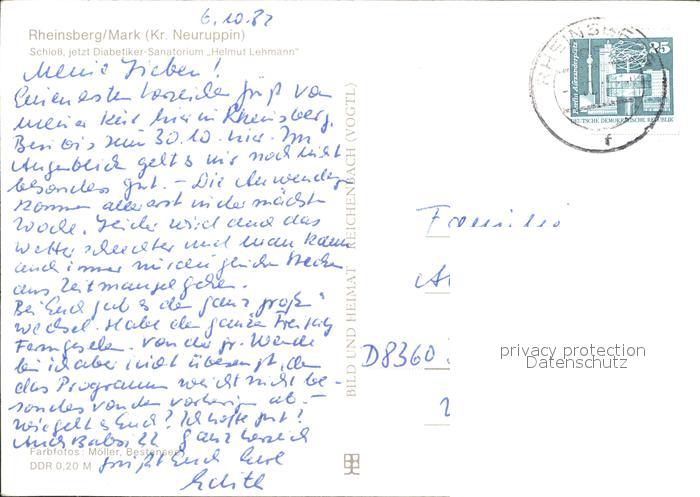 6.10.82
Rheinsberg/Mark (Kr. Neuruppin)
Schloß, jetzt Diabetiker-Sanatorium „Helmut Lehmann"
Meine Lieben!
Einen ersten Gruß von
meiner Kur hier in Rheinsberg.
Bin bis zum 30.10. hier. Im
Augenblick geht es mir noch nicht
besonders gut. – Die Anwendg.
kommen alle erst in der nächsten
Woche. Leider wird auch das
Wetter schlechter und man kann
auch immer nur die gleichen Strecken
aus Zeitmangel gehen.
Bei Euch gab es den ganz großen
Wechsel. Habe den ganzen Freitag
Ferngesehen. Von der gr. Wende
bin ich aber nicht überzeugt, denn
das Programm weicht nicht be-
sonders von dem vorherigen ab. –
Wie geht es Euch? Ich hoffe gut!
Auch ganz herzlich
grüßt Euch Eure
Edith
Farbfotos: Möller, Bestensee
DDR 0,20 M
BILD UND HEIMAT REICHENBACH (VOGTL)
RHEINSBE
f
25
Berlin, Alexanderplatz
DEUTSCHE DEMOKRATISCHE REPUBLIK
Familie
D8360
privacy protection
Datenschutz